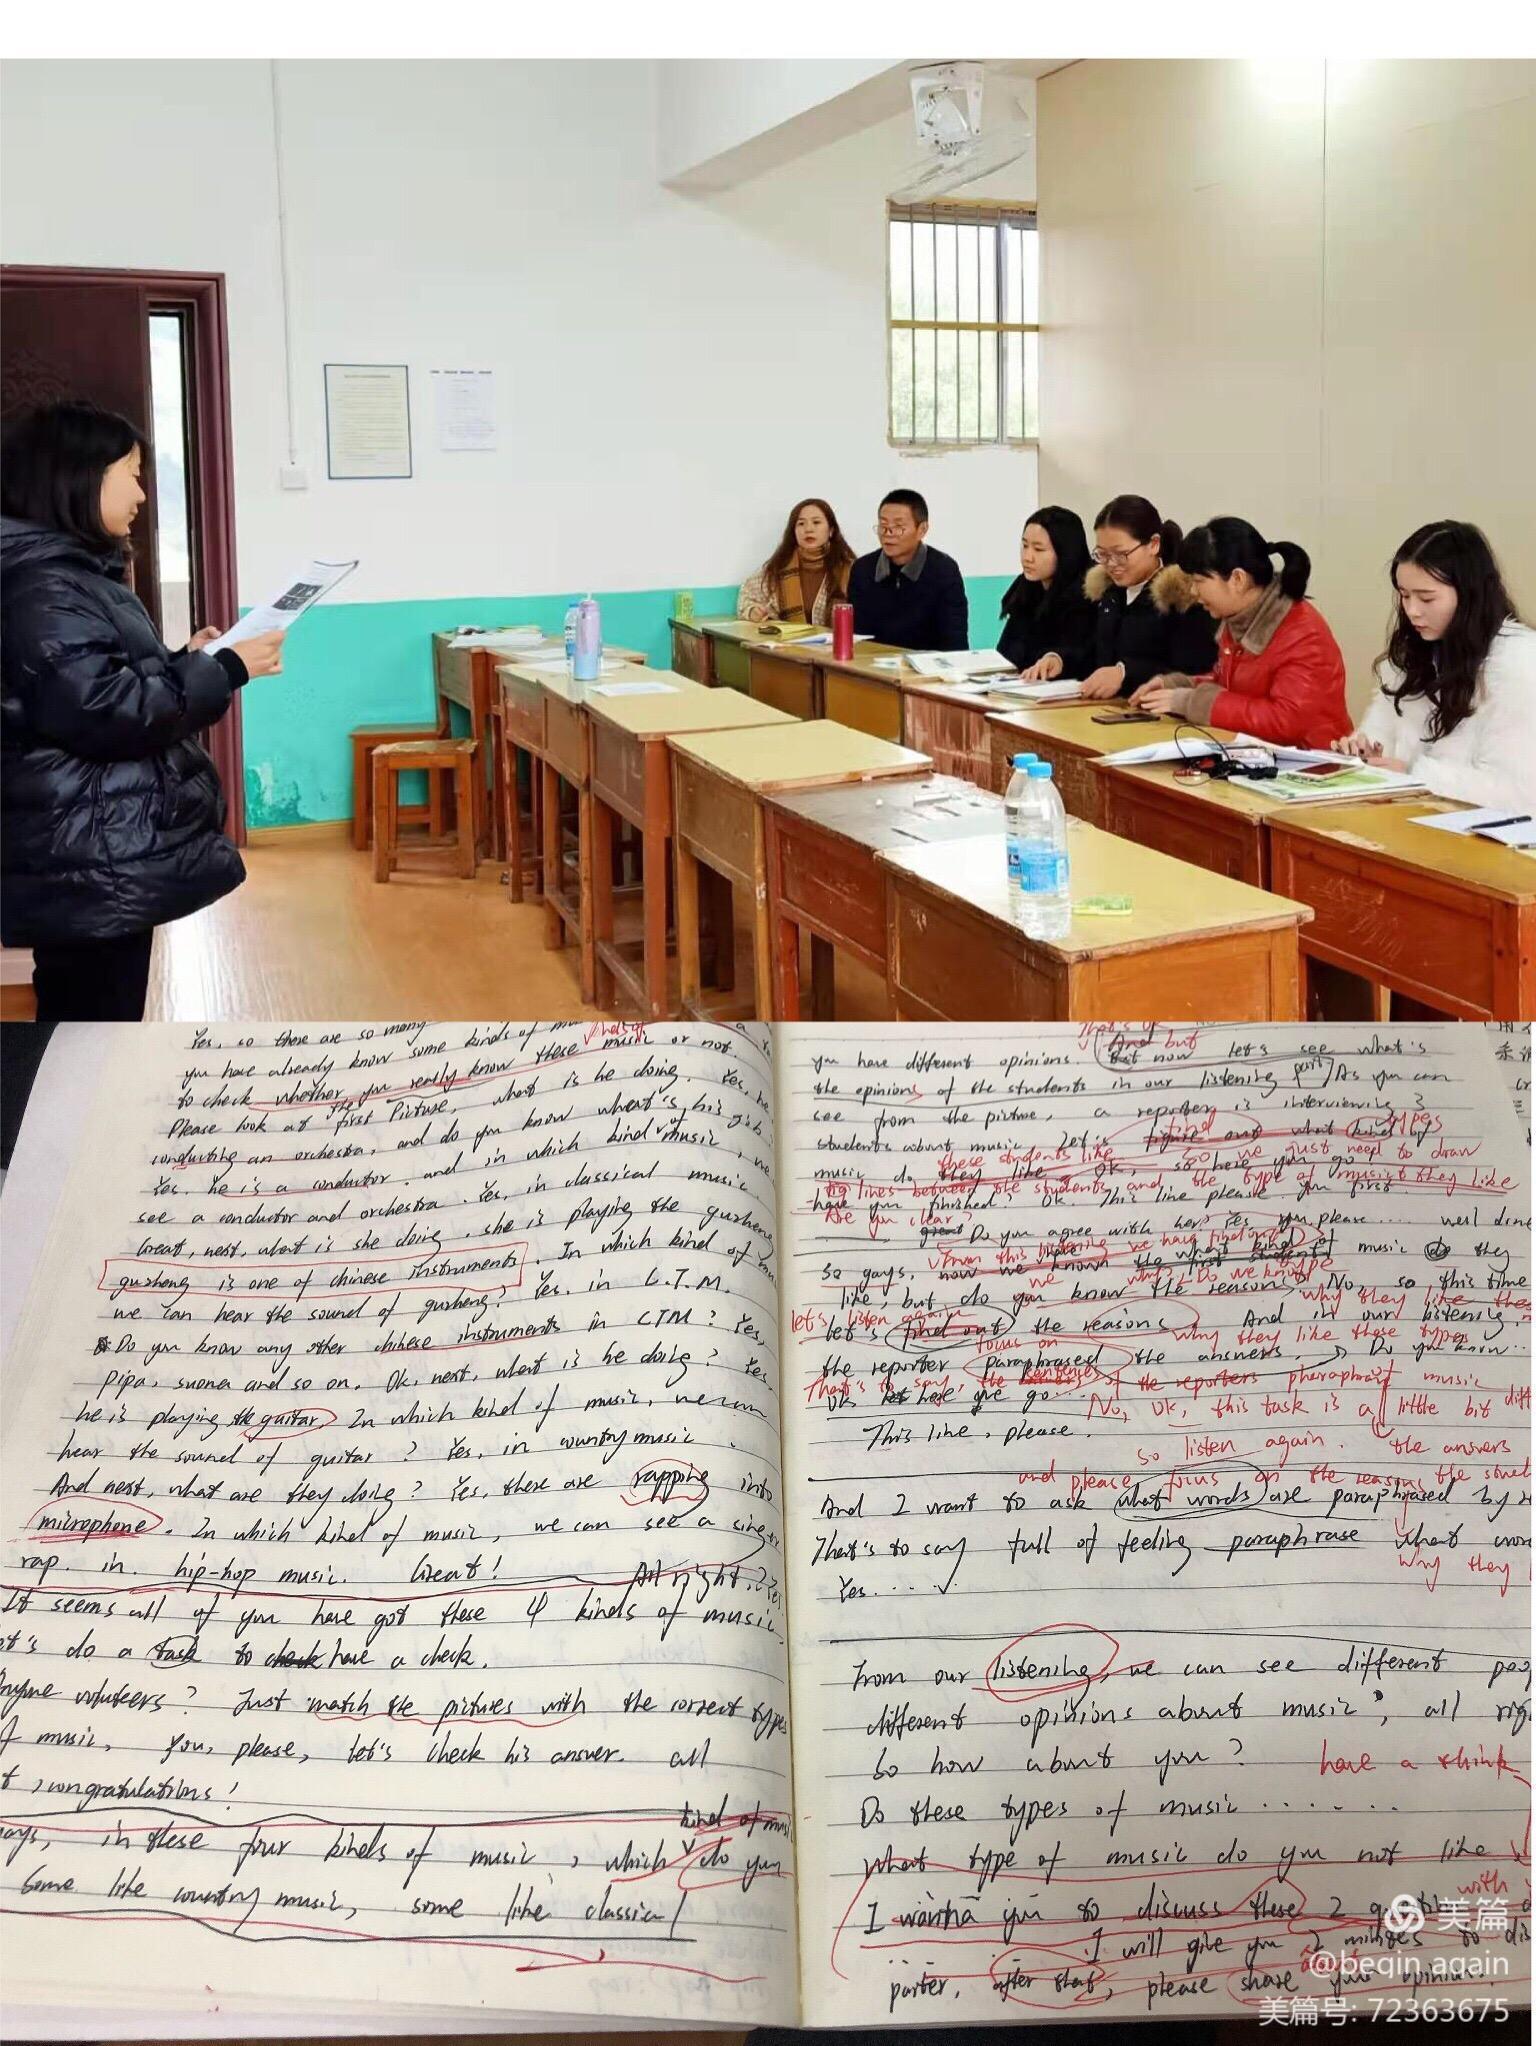 Yes, so there are so many kinds of
you have already know some kinds of
to check whether you really know these kinds of music or not.
Please look at the first Picture, what is he doing. Yes, he
conducting an orchestra, and do you know what's his job
Yes. he is a conductor. and in which kind of music, we
see a conductor and orchestra. Yes, in classical music.
Great, next, what is she doing, she is playing the guzheng
guzheng is one of chinese instruments. In which kind of
we can hear the sound of guzheng? Yes. in C.T.M.
Do you know any other chinese instruments in CTM? Yes,
pipa, suona and so on. Ok, next, what is he doing? Yes.
he is playing the guitar. In which kind of music, we can
hear the sound of guitar? Yes, in country music.
And next, what are they doing? Yes, there are rapping into
microphone. In which kind of music, we can see a singer
rap. in. hip-hop music. Great!
All right,
It seems all of you have got these 4 kinds of music.
do a task to check have a check.
volunteers? Just match the pictures with the correct types
music, you, please, let's check his answer. all
congratulations!
kind of
in these four kinds of music, which do you
Some like country music, some like classical
That's
And but
you have different opinions But now let's see what's
the opinions of the students in our listening part As you can
see from the picture, a reporter is interviewing 3
students about music. Let's figure out what kind of
find types
music do they like. OK, so here you go!
these students like So we just need to draw
lines between the students and the type of music they like
have you finished. OK. This line please. you first.
Are you clear?
great Do you agree with her? Yes, you please..... well done
From this listening we have find out
So gays, now we known the what kind of music do they
like, but do you know the reasons? No, so this time
we why? Do we know
why they like these
let's listen again
let's find out the reasons And in our listening,
focus on why they like these types
the reporter paraphrased the answers, Do you know..
That's to say, the sentences of the reporters pharaphrase music
OK here we go...
No, OK, this task is a little bit
This line, please.
so listen again. the answers
and please focus on the reasons the
And I want to ask what words are paraphrased by
That's to say full of feeling paraphrase what
why they
Yes.....
From our listening, we can see different
different opinions about music, all
So how about you? have a think
Do these types of music......
What type of music do you not like
I wanna you to discuss these 2 with
I will give you 2 minites to
parter, after that, please share your opinions.
美篇
@beqin again
美篇号: 72363675